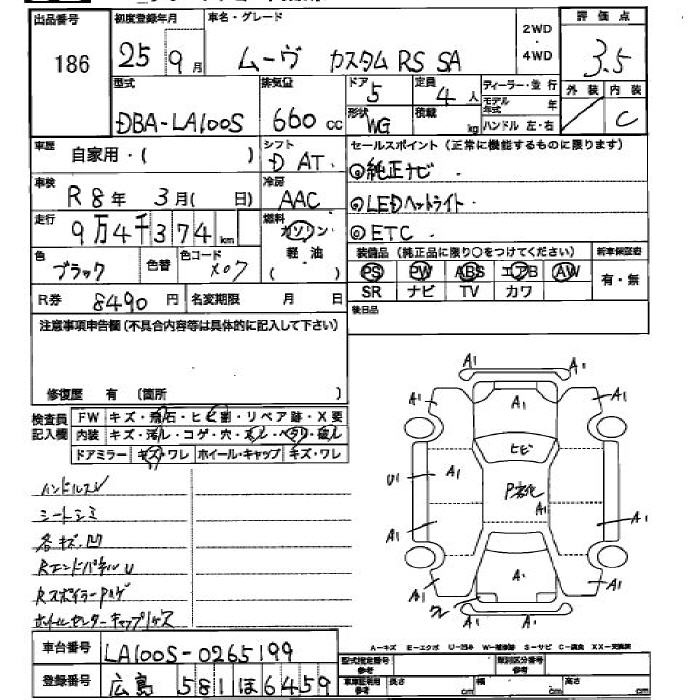 出品番号 初度登録年月 車名・グレード 2WD 評価点
186 25 9月 ムーヴ カスタム RS SA ・ 3.5
4WD
型式 排気量 ドア 5 定員 4人 ディーラー・並行 外装 内装
DBA-LA100S 660cc 形状 WG 積載 kg モデル年式 年 C
ハンドル 左・右
車歴 自家用・( ) シフト D AT セールスポイント(正常に機能するものに限ります)
◎純正ナビ ・
車検 R8年 3月( 日) 冷房 AAC ◎LEDヘットライト ・
走行 9万4千374km 燃料 ガソリン ◎ETC
軽油
( )
色 ブラック 色替 色コード X07 装備品(純正品に限り○をつけてください) 新車保証書
PS PW ABS エアB AW 有・無
SR ナビ TV カワ
R券 8490円 名変期限 月 日 後日品
注意事項申告欄(不具合内容等は具体的に記入して下さい)
修復歴 有 (箇所 )
検査員記入欄 FW キズ・飛石・ヒビ割・リペア跡・X要
内装 キズ・汚レ・コゲ・穴・スレ・ヘタリ・破レ
ドアミラー キズ・ワレ ホイール・キャップ キズ・ワレ
ハンドルスレ
シートシミ
各キズ・凹
RエンドパネルU
Rスポイラー
ホイルセンターキャップ1ケ欠
A1 A1
A1 A1 A1
ヒビ
U1 A1 P劣化
A1 A1 A1
A1 A1 A1
A1
A-キズ E-エクボ U-凹み W-補修跡 S-サビ C-腐食 XX-交換済
車台番号 LA100S-0265199 型式指定番号 参考 類別区分番号 参考
登録番号 広島 581 ほ 6459 車車証記載 参考 長さ cm 幅 cm 高さ cm